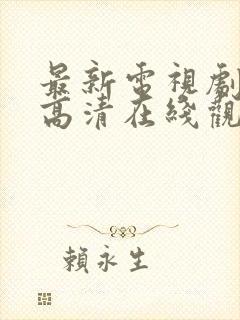 最新電視劇
高清在綫觀
賴永生